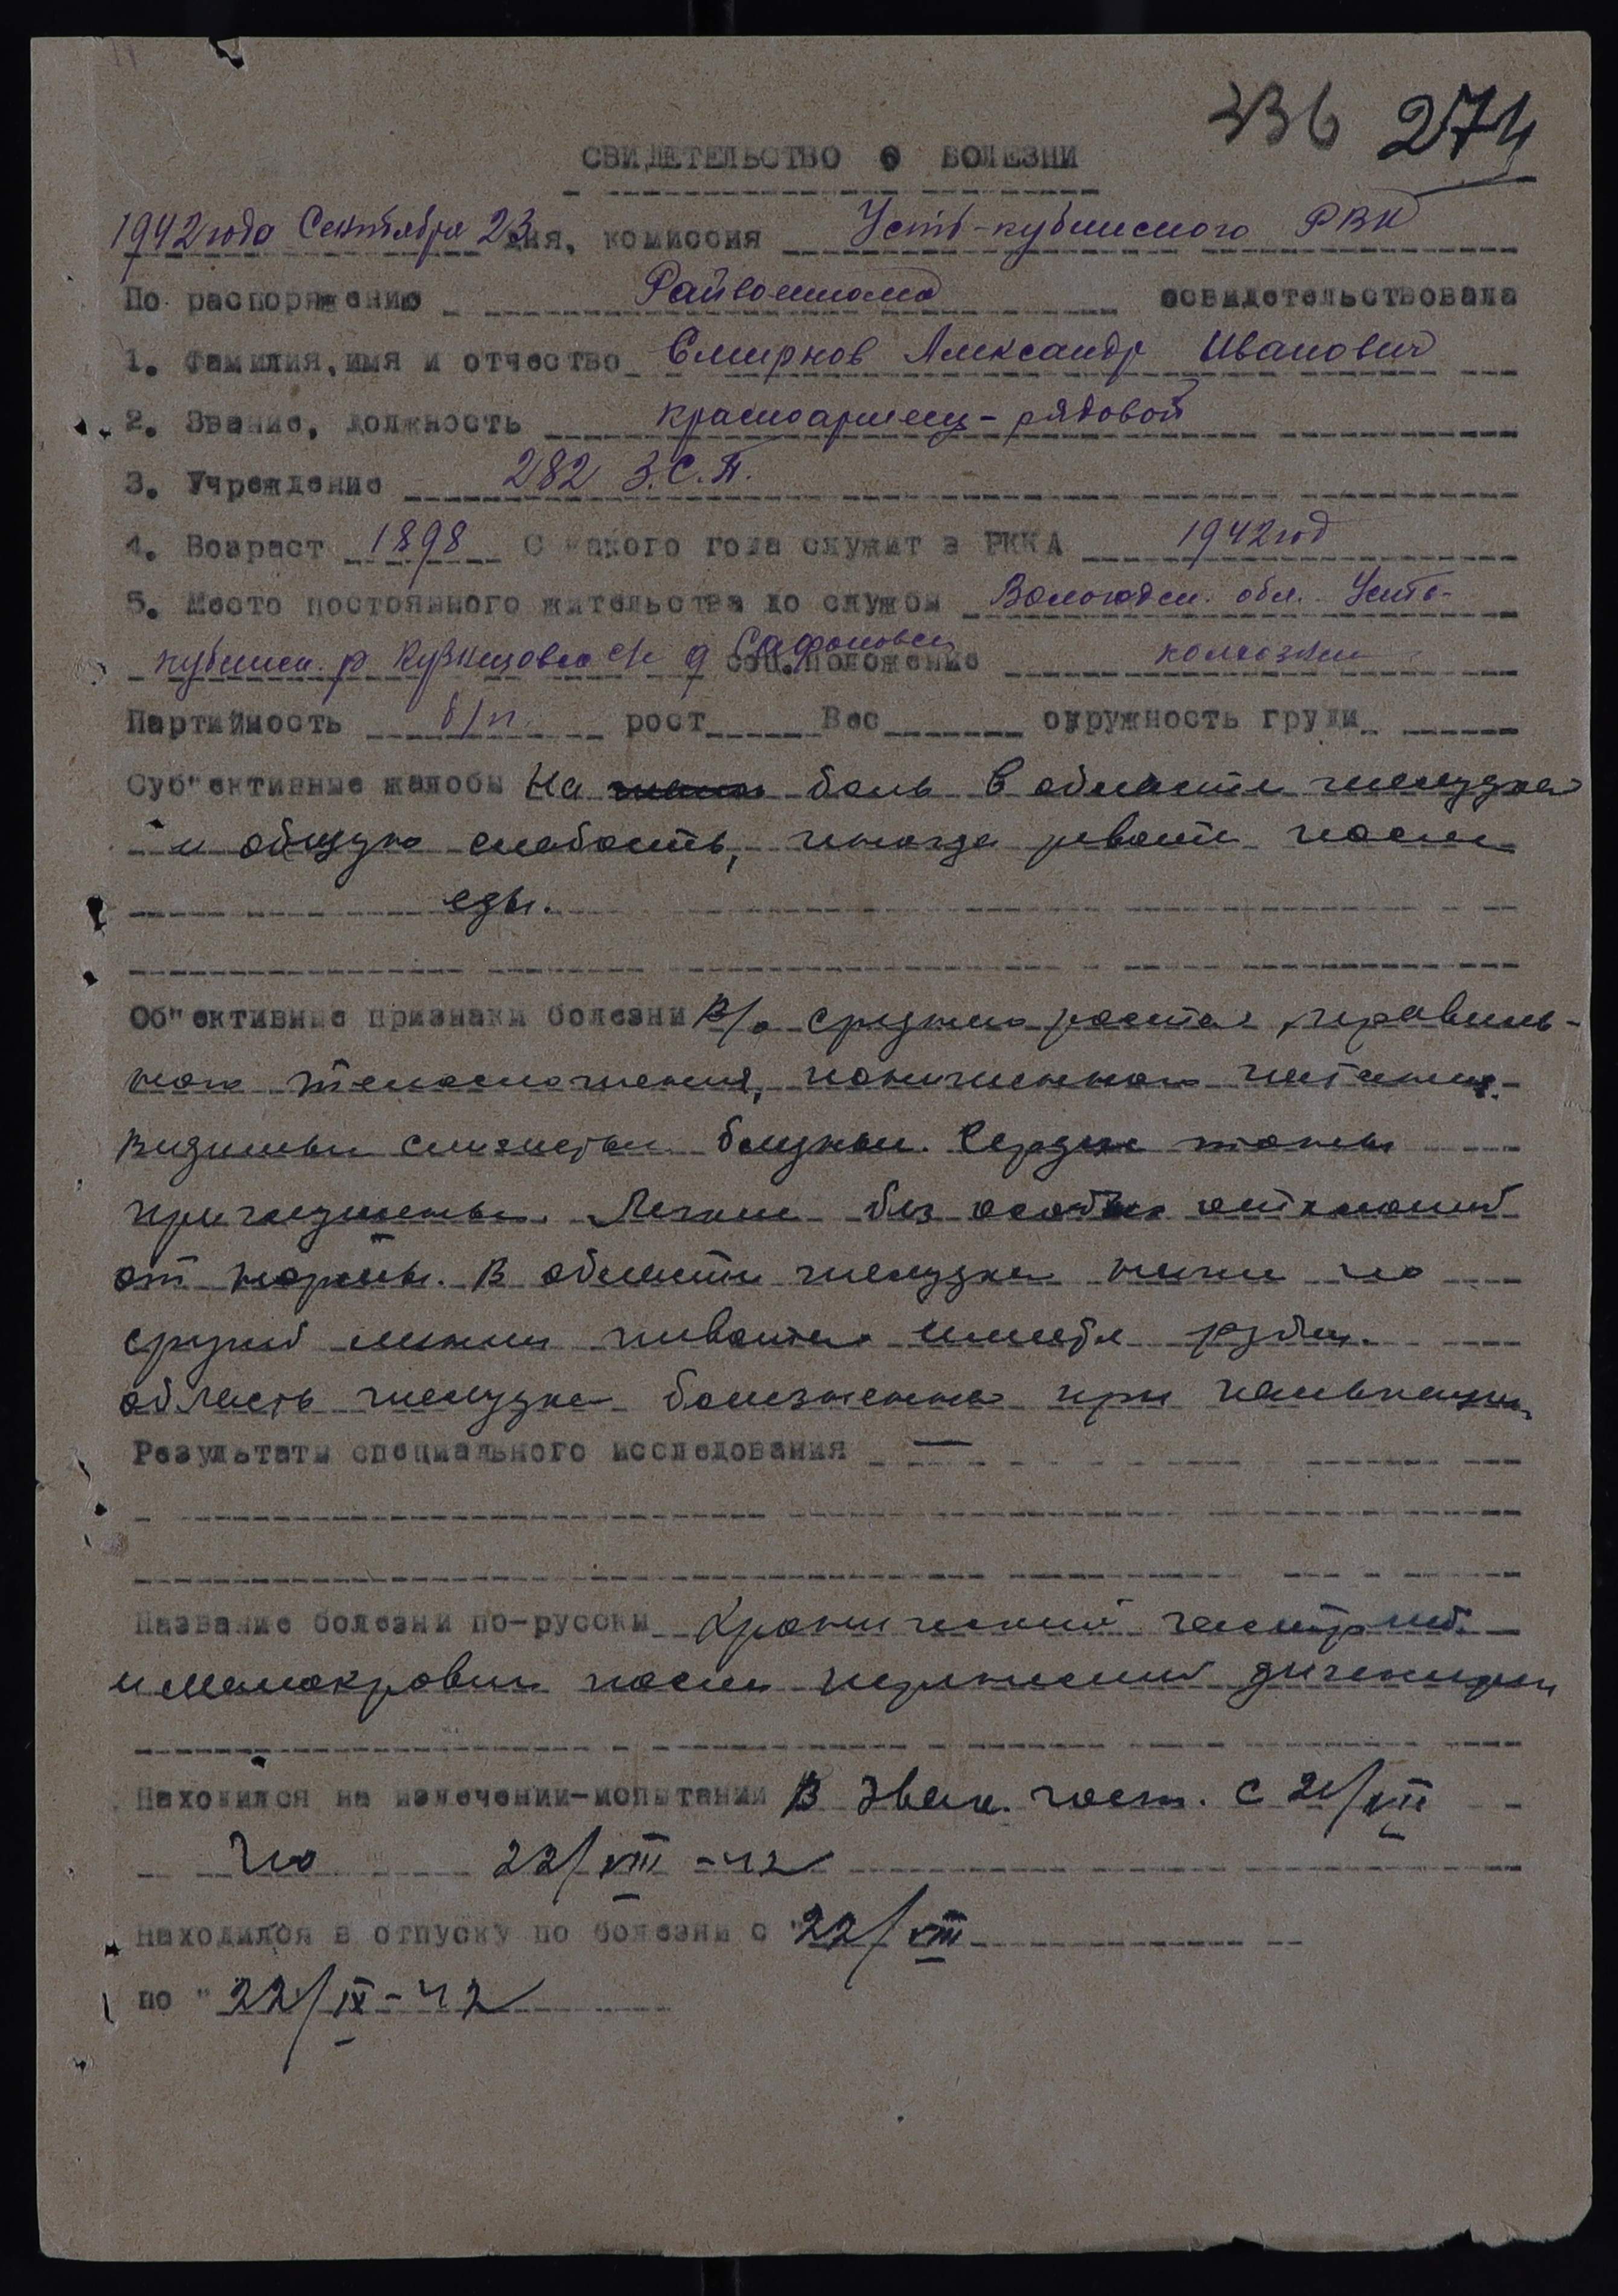 336 274
СВИДЕТЕЛЬСТВО О БОЛЕЗНИ
1942 года Сентября 23 дня, комиссия Усть-кубинского РВК
По распоряжению Райвоенкома освидетельствовала
1. Фамилия, имя и отчество Смирнов Александр Иванович
2. Звание, должность красноармеец - рядовой
3. Учреждение 282 З.С.П.
4. Возраст 1898 С какого года служит в РККА 1942 год
5. Место постоянного жительства до службы Вологодск. обл. Усть-
кубинск. р Кузнецовск с/с д соц.положение колхозник
Партийность б/п. рост Вес окружность груди
Суб"ективные жалобы На боль в области желудка
и общую слабость, иногда рвоти после
еды.
Об"ективные признаки болезни В/о среднего роста, правиль-
ного телосложения, пониженного питания.
Видимые слизистые бледные. Сердце тоны
приглушены. Легкие без особых отклонений
от нормы. В области желудка ниже по
средней линии живота имеется рубец.
область желудка болезненна при пальпации
Результаты специального исследования —
Название болезни по-русски Хронический гастрит
и малокровие после перенесенной дизентерии
Находился на излечении-испытании В эвак. госп. с 21/VII
по 22/VIII - 42
Находился в отпуску по болезни с "22/VIII
по "22/IX - 42